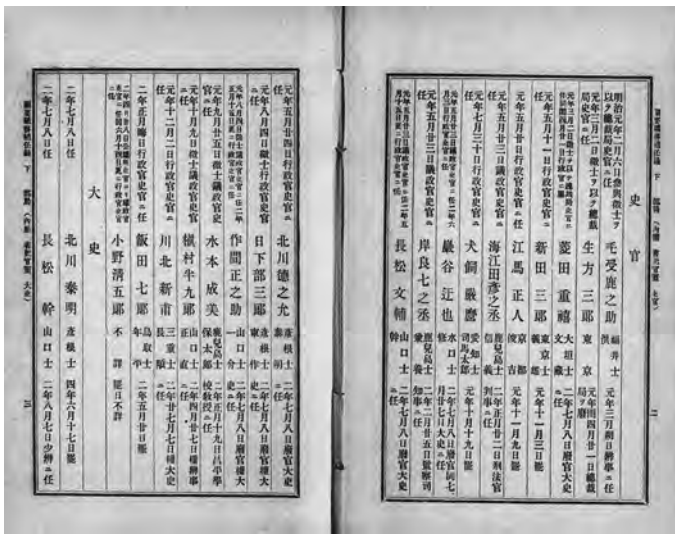 史官
明治元年二月六日參與徵士ヲ以テ總裁局史官ニ任 毛受鹿之助 福井士 元年三月朔日辨事ニ任
元年三月二日徵士ヲ以テ總裁局史官ニ任 生方三郎 東京 元年閏四月廿一日總裁局ヲ廢
菱田重禧 大垣士 文藏 二年七月八日廢官大史ニ任
元年五月十一日行政官史官ニ任 新田三郎 東京士 義雄 元年十一月三日罷
元年五月廿日行政官史官ニ任 江馬正人 京都 俊吉 元年十一月九日罷
元年五月廿三日議政官史官ニ任 海江田彥之丞 鹿兒島士 信義 二年正月廿二日刑法官判事ニ任
元年七月三十日行政官史官ニ任 犬飼嚴麿 愛知士 司馬太郎 元年十月十九日罷
巖谷迂也 水口士 修 二年七月八日廢官同七月廿七日大史ニ任
元年五月廿三日議政官史官ニ任 岸良七之丞 鹿兒島士 兼養 二年二月廿五日監察司知事ニ任
長松文輔 山口士 幹 二年七月八日廢官大史ニ任
二
元年五月廿四日行政官史官ニ任 北川德之允 彥根士 泰明 二年七月八日廢官大史ニ任
元年八月四日徵士行政官史官ニ任 日下部三郎 彥根士 東作 二年七月八日廢官權大史ニ任
作間正之助 山口士 一介 二年七月八日廢官權大史ニ任
元年九月廿五日徵士議政官史官ニ任 水本成美 鹿兒島士 保太郎 二年正月十九日昌平學校敎授ニ任
元年十月九日徵士議政官史官ニ任 槇村半九郎 山口士 正直 二年四月廿七日權辨事ニ任
元年十二月二日行政官史官ニ任 川北新甫 三重士 長顒 二年七月廿七日權大史ニ任
二年正月晦日行政官史官ニ任 飯田七郎 鳥取士 年平 二年五月廿日罷
小野淸五郎 不詳 罷日不詳
大史
二年七月八日任 北川泰明 彥根士 四年六月十七日罷
二年七月八日任 長松幹 山口士 二年八月七日少辨ニ任
三